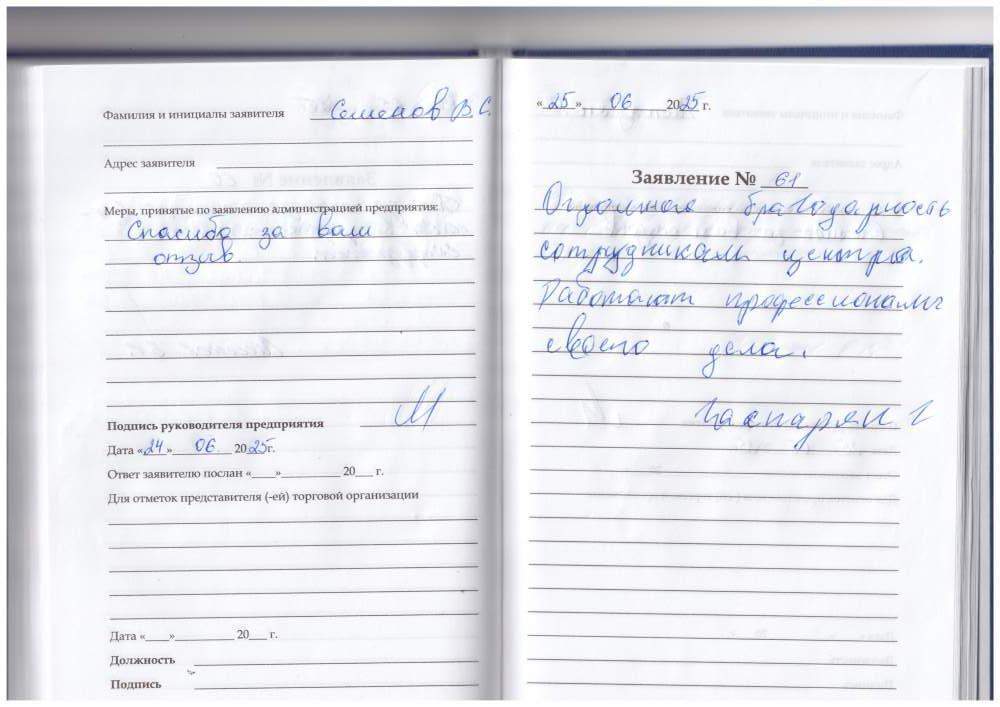 Фамилия и инициалы заявителя Семенов В.С.
Адрес заявителя
Меры, принятые по заявлению администрацией предприятия:
Спасибо за ваш
отзыв.
Подпись руководителя предприятия
Дата «24» 06 2025г.
Ответ заявителю послан «___»__________ 20___ г.
Для отметок представителя (-ей) торговой организации
Дата «___»__________ 20___ г.
Должность
Подпись
«25» 06 2025 г.
Заявление № 61
благодарность
сотрудникам центра.
Работают профессионалы
своего дела.
Гаспарян Г